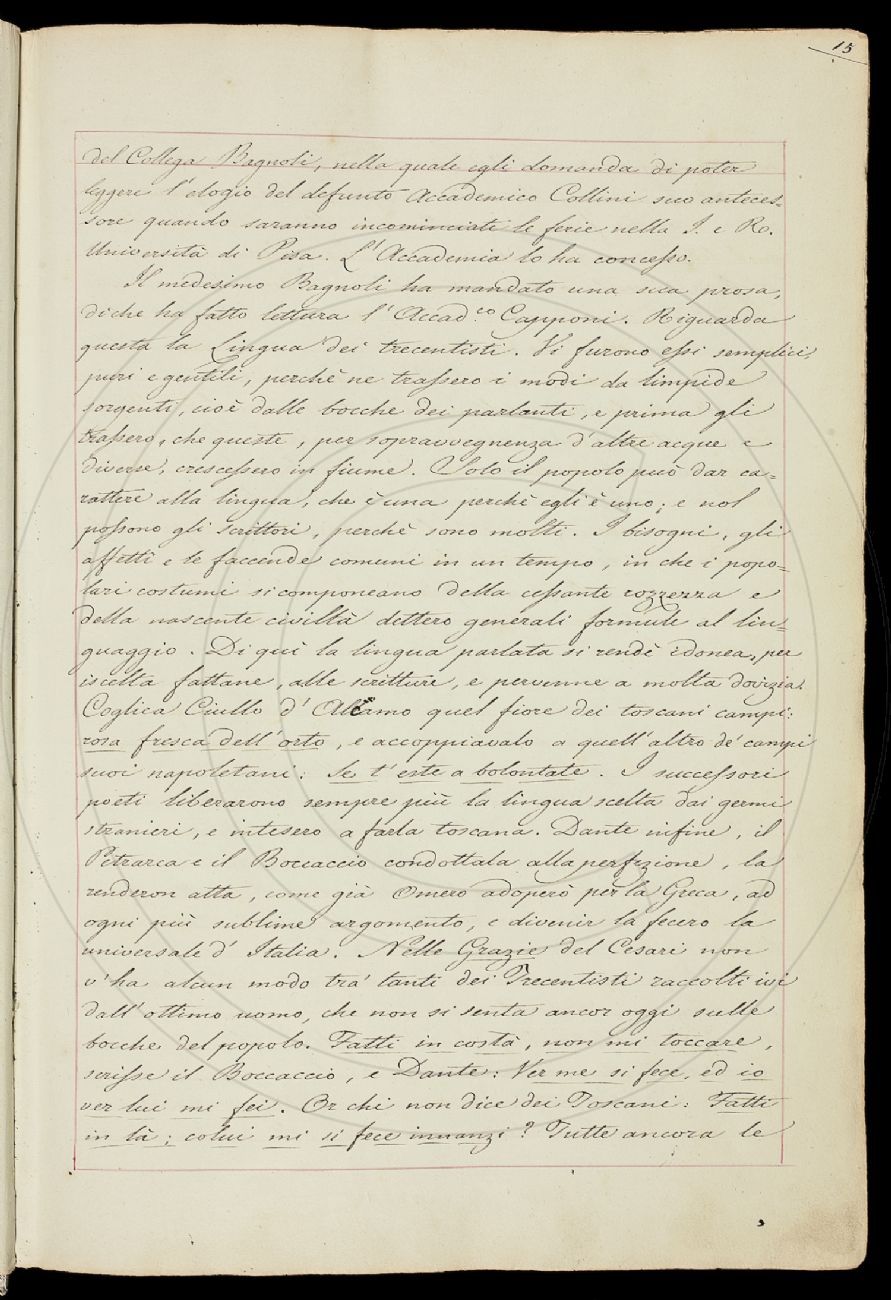 15
del Collega Bagnoli, nella quale egli domanda di poter
leggere l'elogio del defunto Accademico Collini suo anteces=
sore quando saranno incominciate le ferie nella I. e R.
Università di Pisa. L'Accademia lo ha concesso.
Il medesimo Bagnoli ha mandato una sua prosa,
di che ha fatto lettura l'Accad.co Capponi. Riguarda
questa la Lingua dei trecentisti. Vi furono essi semplici,
puri e gentili, perchè ne trassero i modi da limpide
sorgenti, cioè dalle bocche dei parlanti, e prima gli
trassero, che queste, per sopravvegnenza d'altre acque e
diverse, crescessero in fiume. Solo il popolo può dar ca=
rattere alla lingua, che è una perchè egli è uno; e nol
possono gli scrittori, perchè sono molti. I bisogni, gli
affetti e le faccende comuni in un tempo, in che i popo=
lari costumi si componeano della cessante rozzezza e
della nascente civiltà dettero generali formule al lin=
guaggio. Di qui la lingua parlata si rendè idonea, per
iscelta fattane, alle scritture, e pervenne a molta dovizia.
Coglica Ciullo d'Alcamo quel fiore dei toscani campi:
rosa fresca dell'orto, e accoppiavalo a quell'altro de' campi
suoi napoletani: Se t'este a bolontate. I successori
poeti liberarono sempre più la lingua scelta dai germi
stranieri, e intesero a farla toscana. Dante infine, il
Petrarca e il Boccaccio condottala alla perfezione, la
renderon atta, come già Omero adoperò per la Greca, ad
ogni più sublime argomento, e divenir la fecero la
universale d'Italia. Nelle Grazie del Cesari non
v'ha alcun modo tra' tanti dei Trecentisti raccolti ivi
dall'ottimo uomo, che non si senta ancor oggi sulle
bocche del popolo. Fatti in costà, non mi toccare,
scrisse il Boccaccio, e Dante: Ver me si fece, ed io
ver lui mi fei. Or chi non dice dei Toscani: Fatti
in là; colui mi si fece innanzi? Tutte ancora le